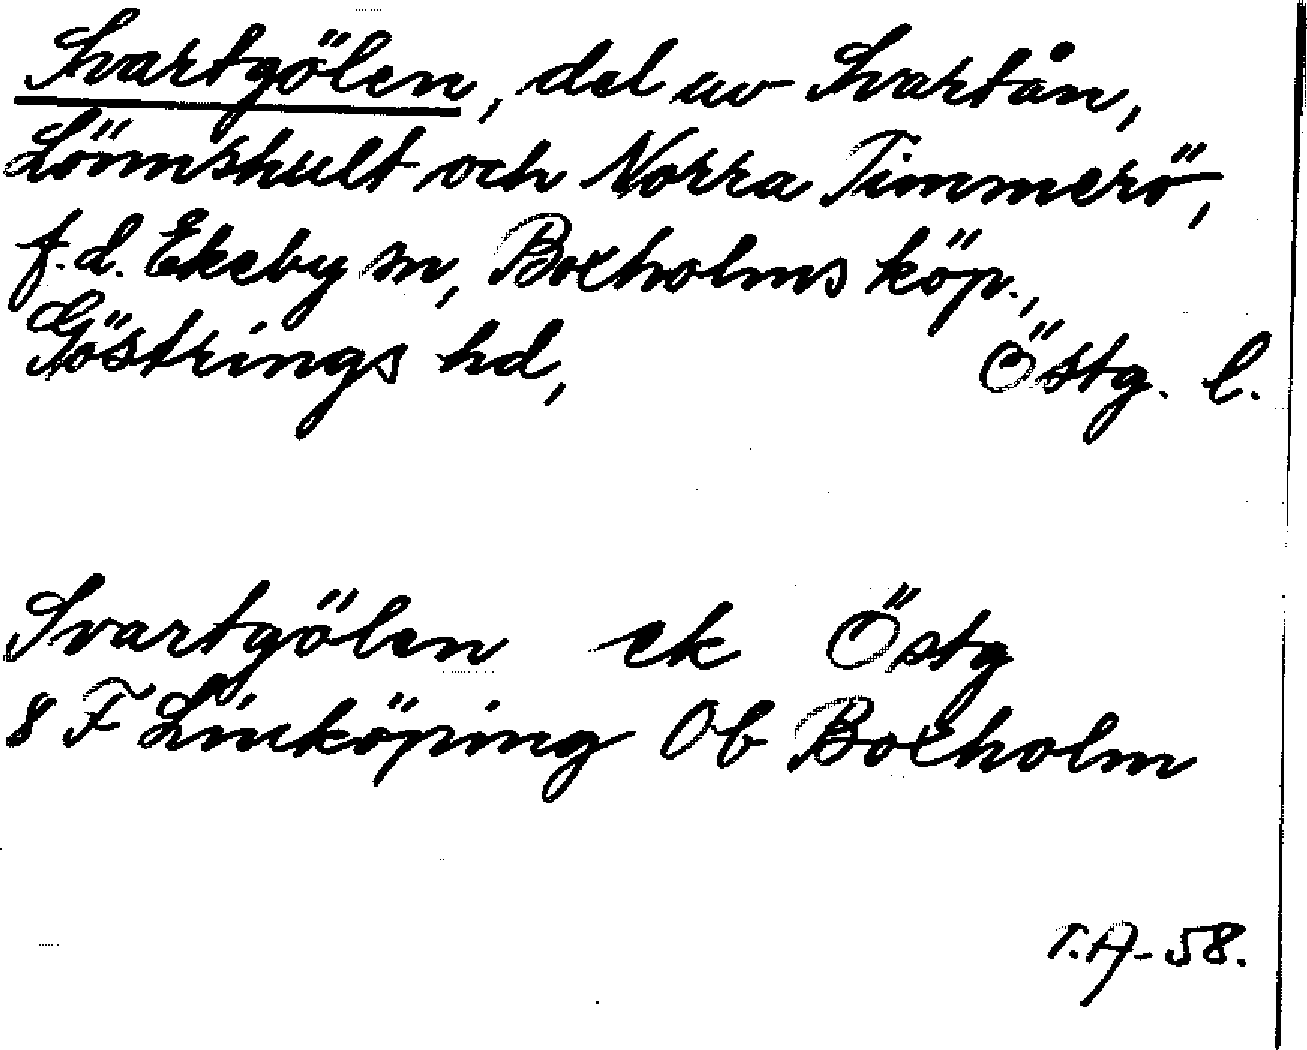 Svartgölen, del av Svartån,
Lömshult och Norra Timmerö,
f.d. Ekeby sn, Boxholms köp.,
Göstrings hd, Östg. l.
Svartgölen ek Östg
8 F Linköping Ob Boxholm
T.A-58.